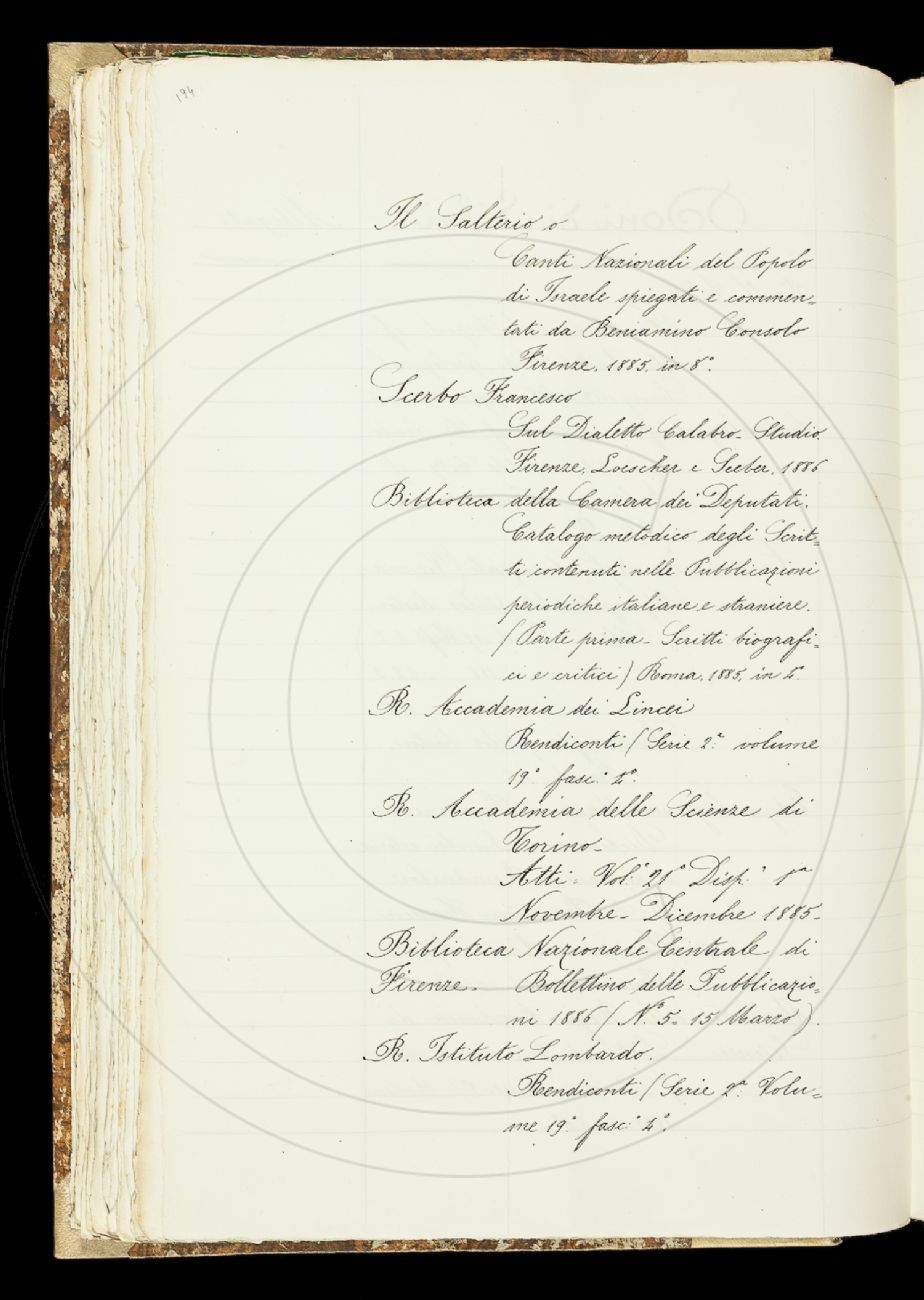 194
Il Salterio o
Canti Nazionali del Popolo
di Israele spiegati e commen=
tati da Beniamino Consolo
Firenze, 1885, in 8°.
Scerbo Francesco
Sul Dialetto Calabro - Studio.
Firenze, Loescher e Seeber, 1886
Biblioteca della Camera dei Deputati.
Catalogo metodico degli Scrit=
ti contenuti nelle Pubblicazioni
periodiche italiane e straniere.
(Parte prima - Scritti biografi=
ci e critici) Roma, 1885, in 4°.
R. Accademia dei Lincei
Rendiconti (Serie 2ª volume
19° fasc.° 4°.
R. Accademia delle Scienze di
Torino -
Atti = Vol.° 21° Disp.ª 1ª
Novembre - Dicembre 1885 -
Biblioteca Nazionale Centrale di
Firenze - Bollettino delle Pubblicazio=
ni 1886 (N.° 5 - 15 Marzo).
R. Istituto Lombardo.
Rendiconti (Serie 2ª Volu=
me 19° fasc.° 4°.